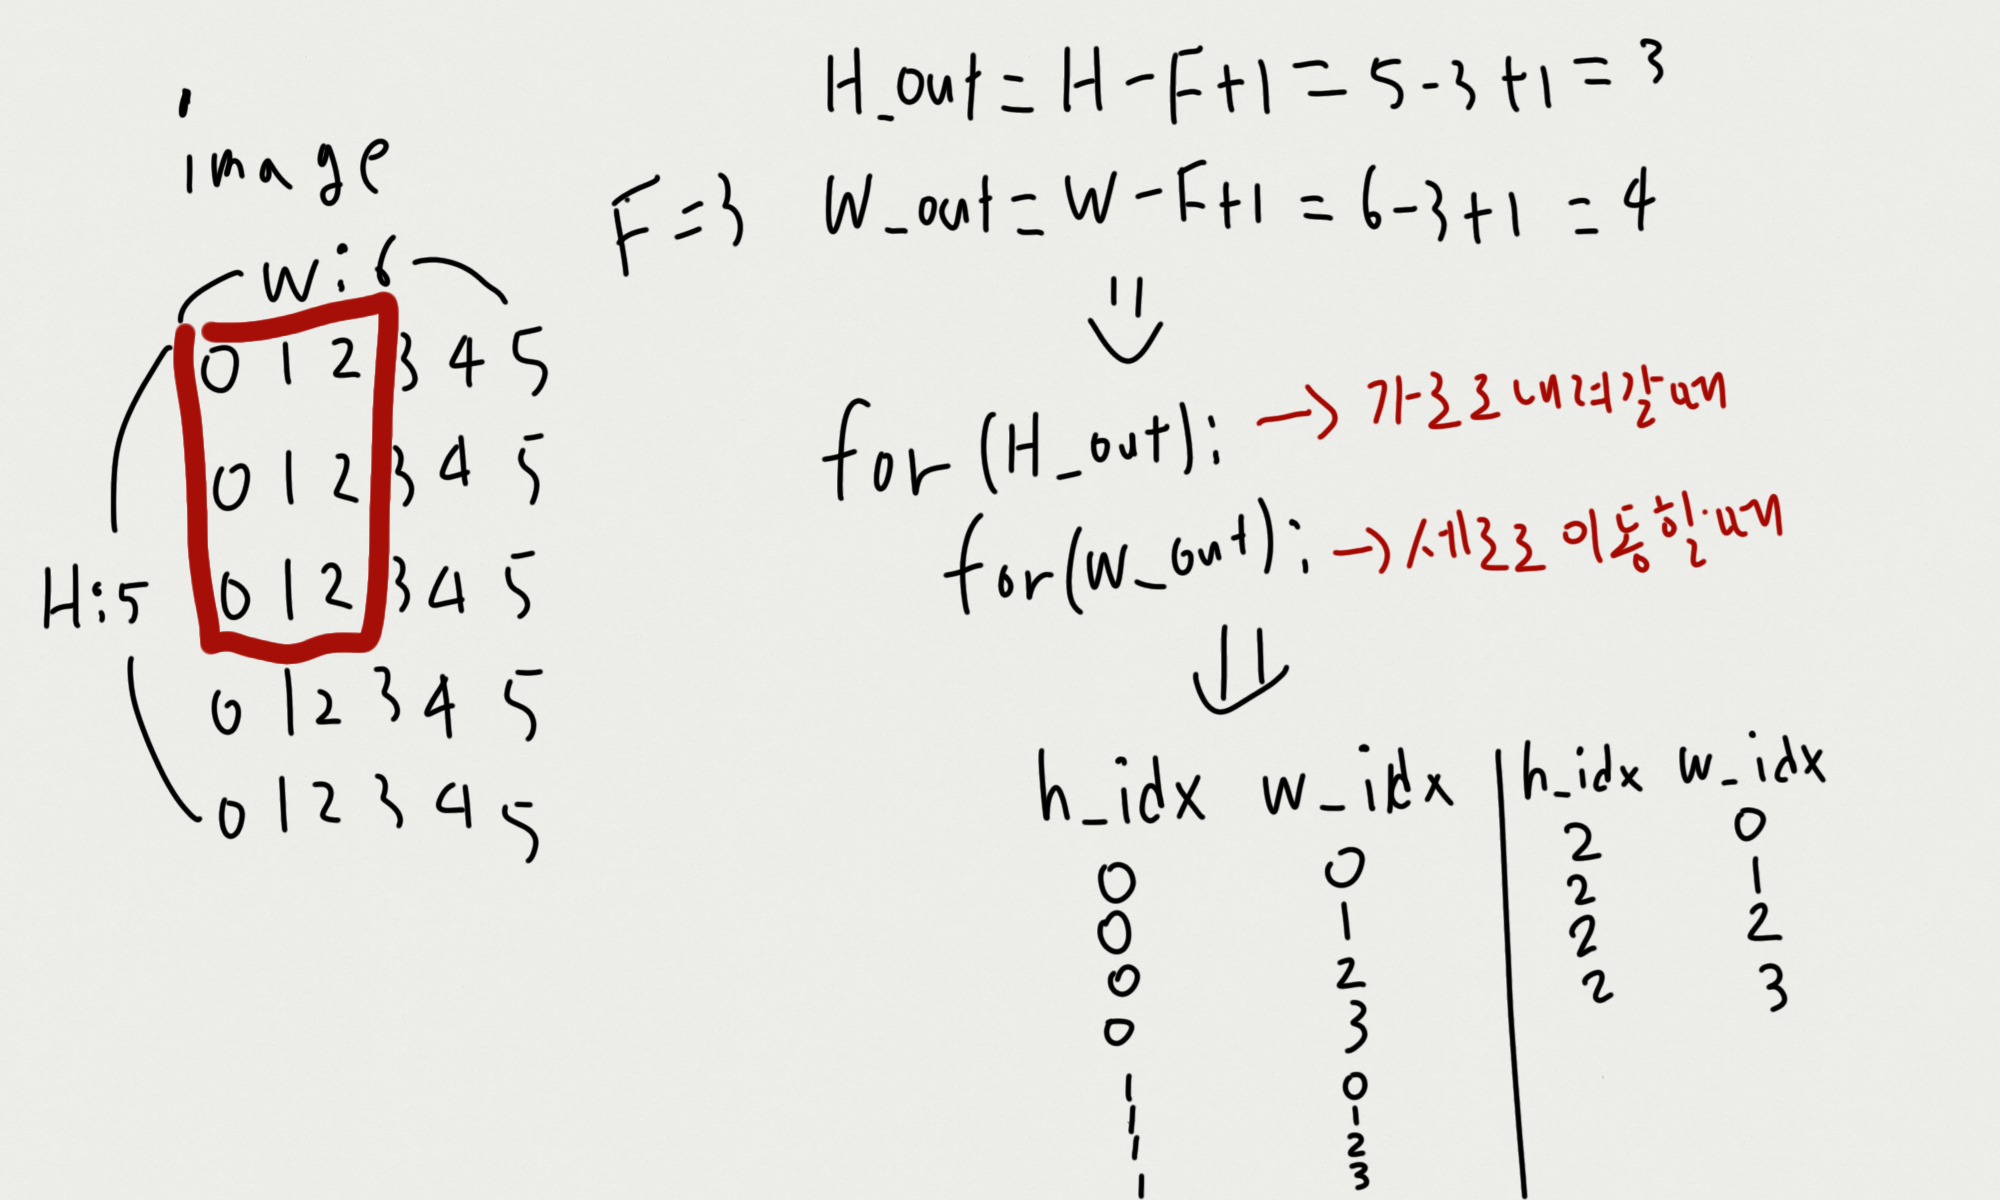 image
W:6
0 1 2 3 4 5
0 1 2 3 4 5
H:5 0 1 2 3 4 5
0 1 2 3 4 5
0 1 2 3 4 5
F=3
H_out = H-F+1 = 5-3+1 = 3
W_out = W-F+1 = 6-3+1 = 4
for (H_out): → 가로로 내려갈때
for(W_out): → 세로로 이동할때
h_idx w_idx
0 0
0 1
0 2
0 3
1 0
1 1
1 2
1 3
h_idx w_idx
2 0
2 1
2 2
2 3